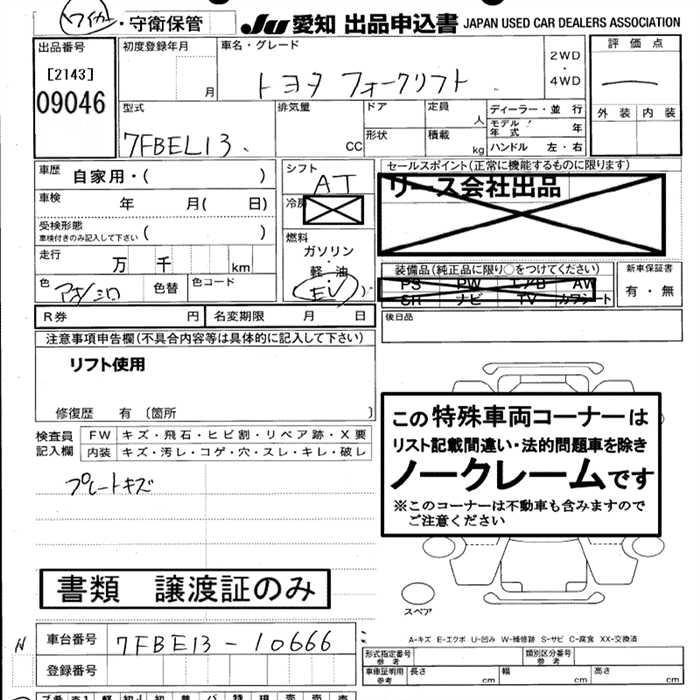 ワイカー・守衛保管
JU 愛知 出品申込書 JAPAN USED CAR DEALERS ASSOCIATION
出品番号 初度登録年月 車名・グレード 評価点
[2143] 月 トヨタ フォークリフト 2WD ・ 4WD
09046 外装 内装
型式 排気量 ドア 定員 人 ディーラー・並 行
モデル年式 年
7FBEL13. CC 形状 積載 kg ハンドル 左・右
車歴 自家用・( ) シフト AT セールスポイント(正常に機能するものに限ります)
リース会社出品
車検 年 月( 日) 冷房
受検形態 ( )
車検付きのみ記入して下さい
燃料
ガソリン
走行 万 千 km 軽・油
EV
装備品(純正品に限り○をつけてください) 新車保証書
PS PW エアB AW 有・無
SR ナビ TV カワシート
色 色替 色コード
R券 円 名変期限 月 日 後日品
注意事項申告欄(不具合内容等は具体的に記入して下さい)
リフト使用
修復歴 有 〔箇所 〕
検査員記入欄 FW キズ・飛石・ヒビ割・リペア跡・X要
内装 キズ・汚レ・コゲ・穴・スレ・キレ・破レ
プレートキズ
この特殊車両コーナーは
リスト記載間違い・法的問題車を除き
ノークレームです
※このコーナーは不動車も含みますので
ご注意ください
書類 譲渡証のみ
スペア
A-キズ E-エクボ U-凹み W-補修跡 S-サビ C-腐食 XX-交換済
N 車台番号 7FBE13-10666
登録番号
形式指定番号 参考 類別区分番号 参考
車庫証明用 参考 長さ cm 幅 cm 高さ cm